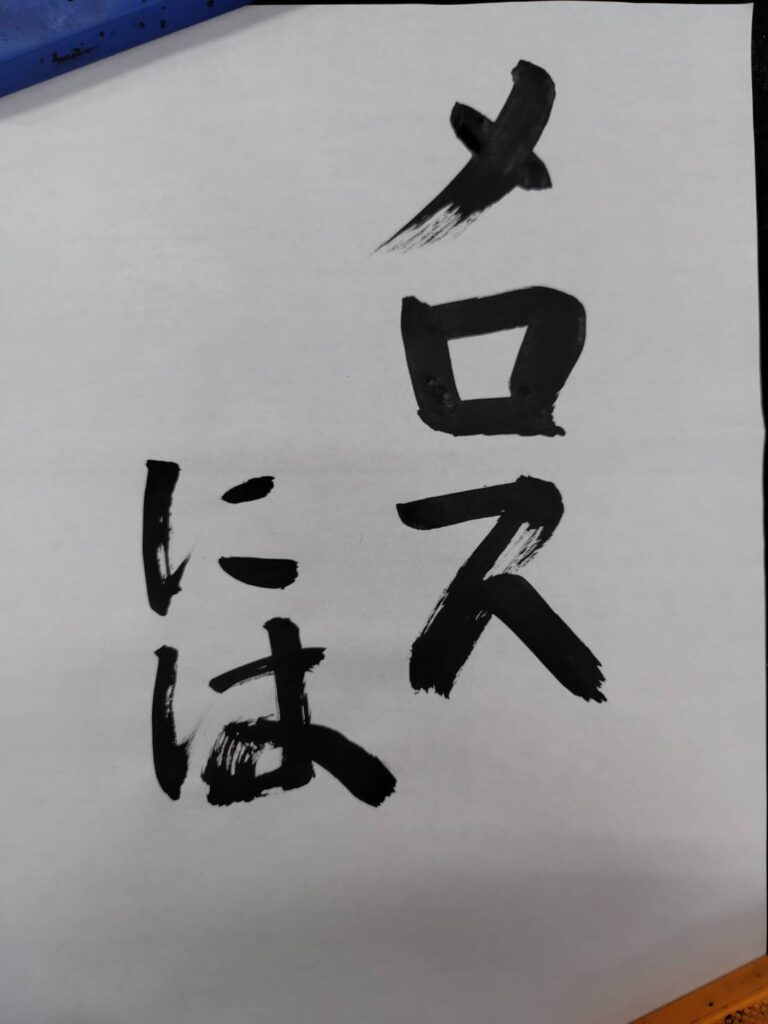 メロス
には